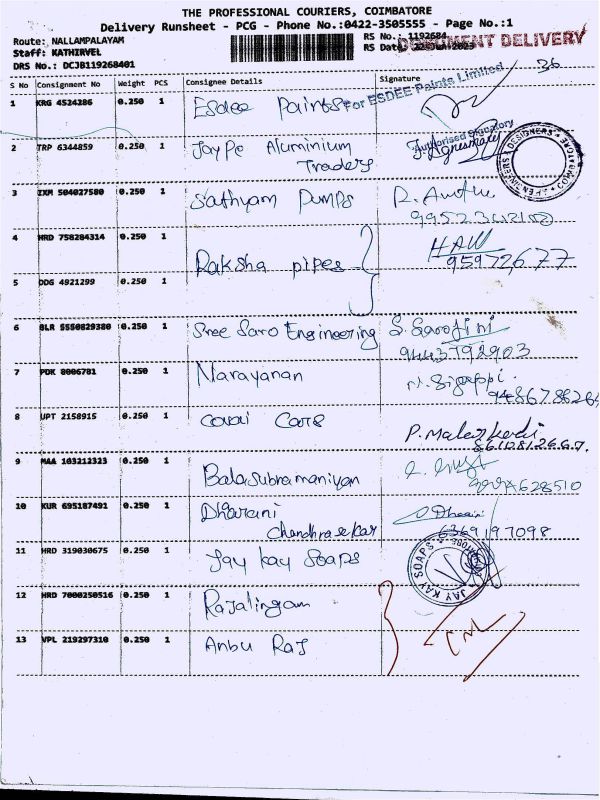 THE PROFESSIONAL COURIERS, COIMBATORE
Delivery Runsheet - PCG - Phone No.:0422-3505555 - Page No.:1
Route: NALLAMPALAYAM
Staff: KATHIRVEL
DRS No.: DCJB119268401
RS No.: 1192684
RS Da
DOCUMENT DELIVERY
36
S No Consignment No Weight PCS Consignee Details Signature
1 KRG 4524286 0.250 1 Esdee Paints
For ESDEE Paints Limited
Authorised Signatory
2 TRP 6344859 0.250 1 Jay Pe Aluminium
Traders
3 ZXM 504027580 0.250 1 Sathyam Pumps
4 HRD 758284314 0.250 1 Raksha pipes HAW
95972677
5 DDG 4921299 0.250 1
6 BLR 5550829380 0.250 1 Sree Saro Engineering S. Sarojini
9443792903
7 PDK 8006781 0.250 1 Narayanan
8 UPT 2158915 0.250 1 Covai Care
9 MAA 103212323 0.250 1 Balasubramaniyan
10 KUR 695187491 0.250 1 Dharani
Chandrasekar
6369197098
11 HRD 319030675 0.250 1 Jay kay Soaps
JAY KAY SOAPS
12 HRD 7000250516 0.250 1 Rajalingam
13 VPL 219297310 0.250 1 Anbu Raj